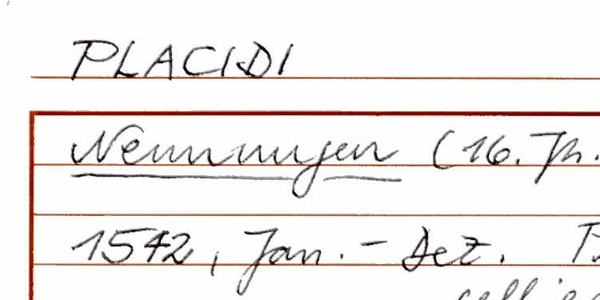 PLACIDI
Nenningen (16. Jh.
1542, Jan. - Dez.